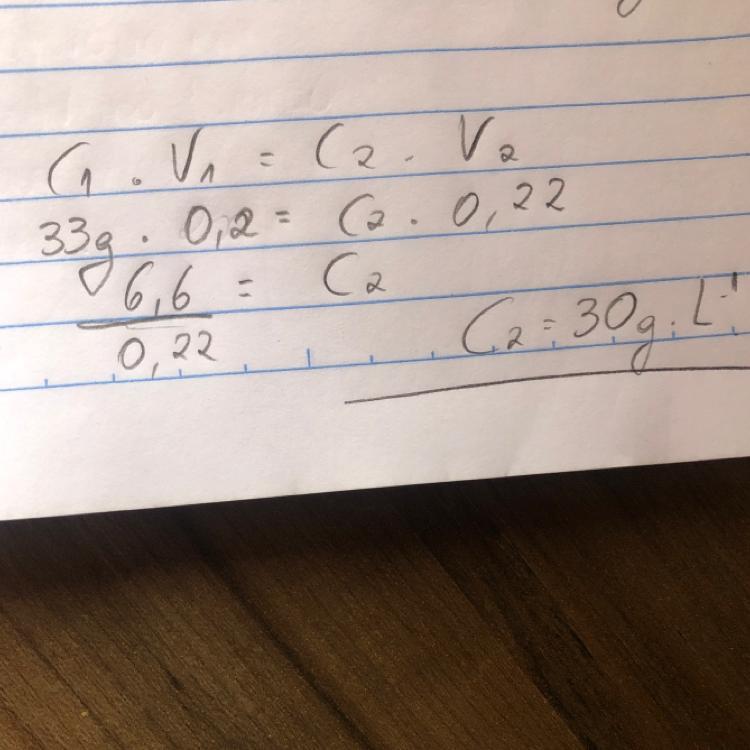 C₁ . V₁ = C₂ . V₂
33g . 0,2 = C₂ . 0,22
6,6 = C₂
0,22
C₂ = 30g . L⁻¹